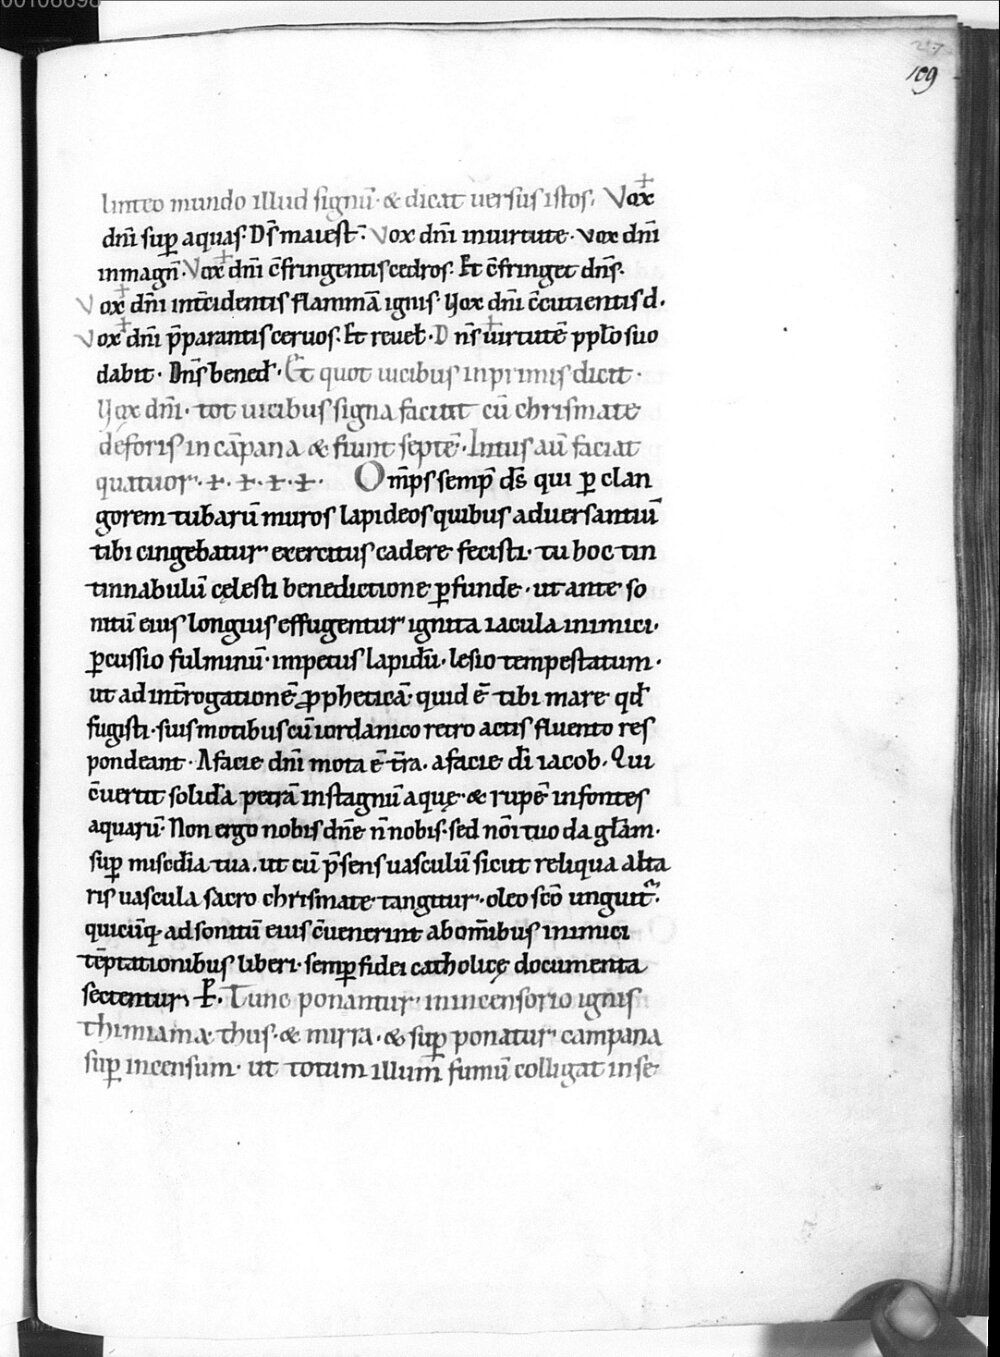 00106698
217
109
linteo mundo illud signū· & dicat uersus istos. Vox
dn̄i suꝑ aquas· Ds̄ maiest̄· Vox dn̄i inuirtute· vox dn̄i
inmagn̄· Vox dn̄i c̄fringentis cedros. Et c̄fringet dn̄s.
Vox dn̄i int̄cidentis flammā ignis· Vox dn̄i c̄cutientis d.
Vox dn̄i p̄parantis ceruos. Et reuel̄· Dn̄s uirtutē ppl̄o suo
dabit· Dn̄s bened̄· Et quot uicibus inprimis dicit·
Vox dn̄i· tot uicibus signa faciat cū chrismate
déforis in cāpana & fiunt septē· Intus aū faciat
quatuor·+·+·+·+· Om̄ps semp̄ ds̄ qui ꝑ clan
gorem tubarū muros lapideos quibus aduersantiū
tibi cingebatur exercitus cadere fecisti· tu hoc tin
tinnabulū cęlesti benedictione ꝑfunde· ut ante so
nitū eius longius effugentur ignita iacula inimici·
ꝑcussio fulminū· impetus lapidū· lesio tempestatum·
ut ad int̄rogationē ꝓpheticā· quid ē tibi mare qd̄
fugisti· suis motibus cū iordanico retro actis fluento res
pondeant· Afacie dn̄i mota ē t̄ra. afacie dī iacob. Qui
c̄uertit solidā petrā instagnū aquę· & rupē infontes
aquarū· Non ergo nobis dn̄e n̄ nobis· sed nōi tuo da gl̄am·
suꝑ misc̄dia tua. ut cū p̄sens uasculū sicut reliqua alta
ris uascula sacro chrismate tangitur· oleo scō unguit̄·
quicūq; ad sonitū eius c̄uenerint ab om̄ibus inimici
tēptationibus liberi· semꝑ fidei catholicę documenta
sectentur, P. Tunc ponantur inincensorio ignis
thimiama· thus· & mirra· & suꝑ ponatur campana
suꝑ incensum· ut totum illum̄ fumū colligat inse